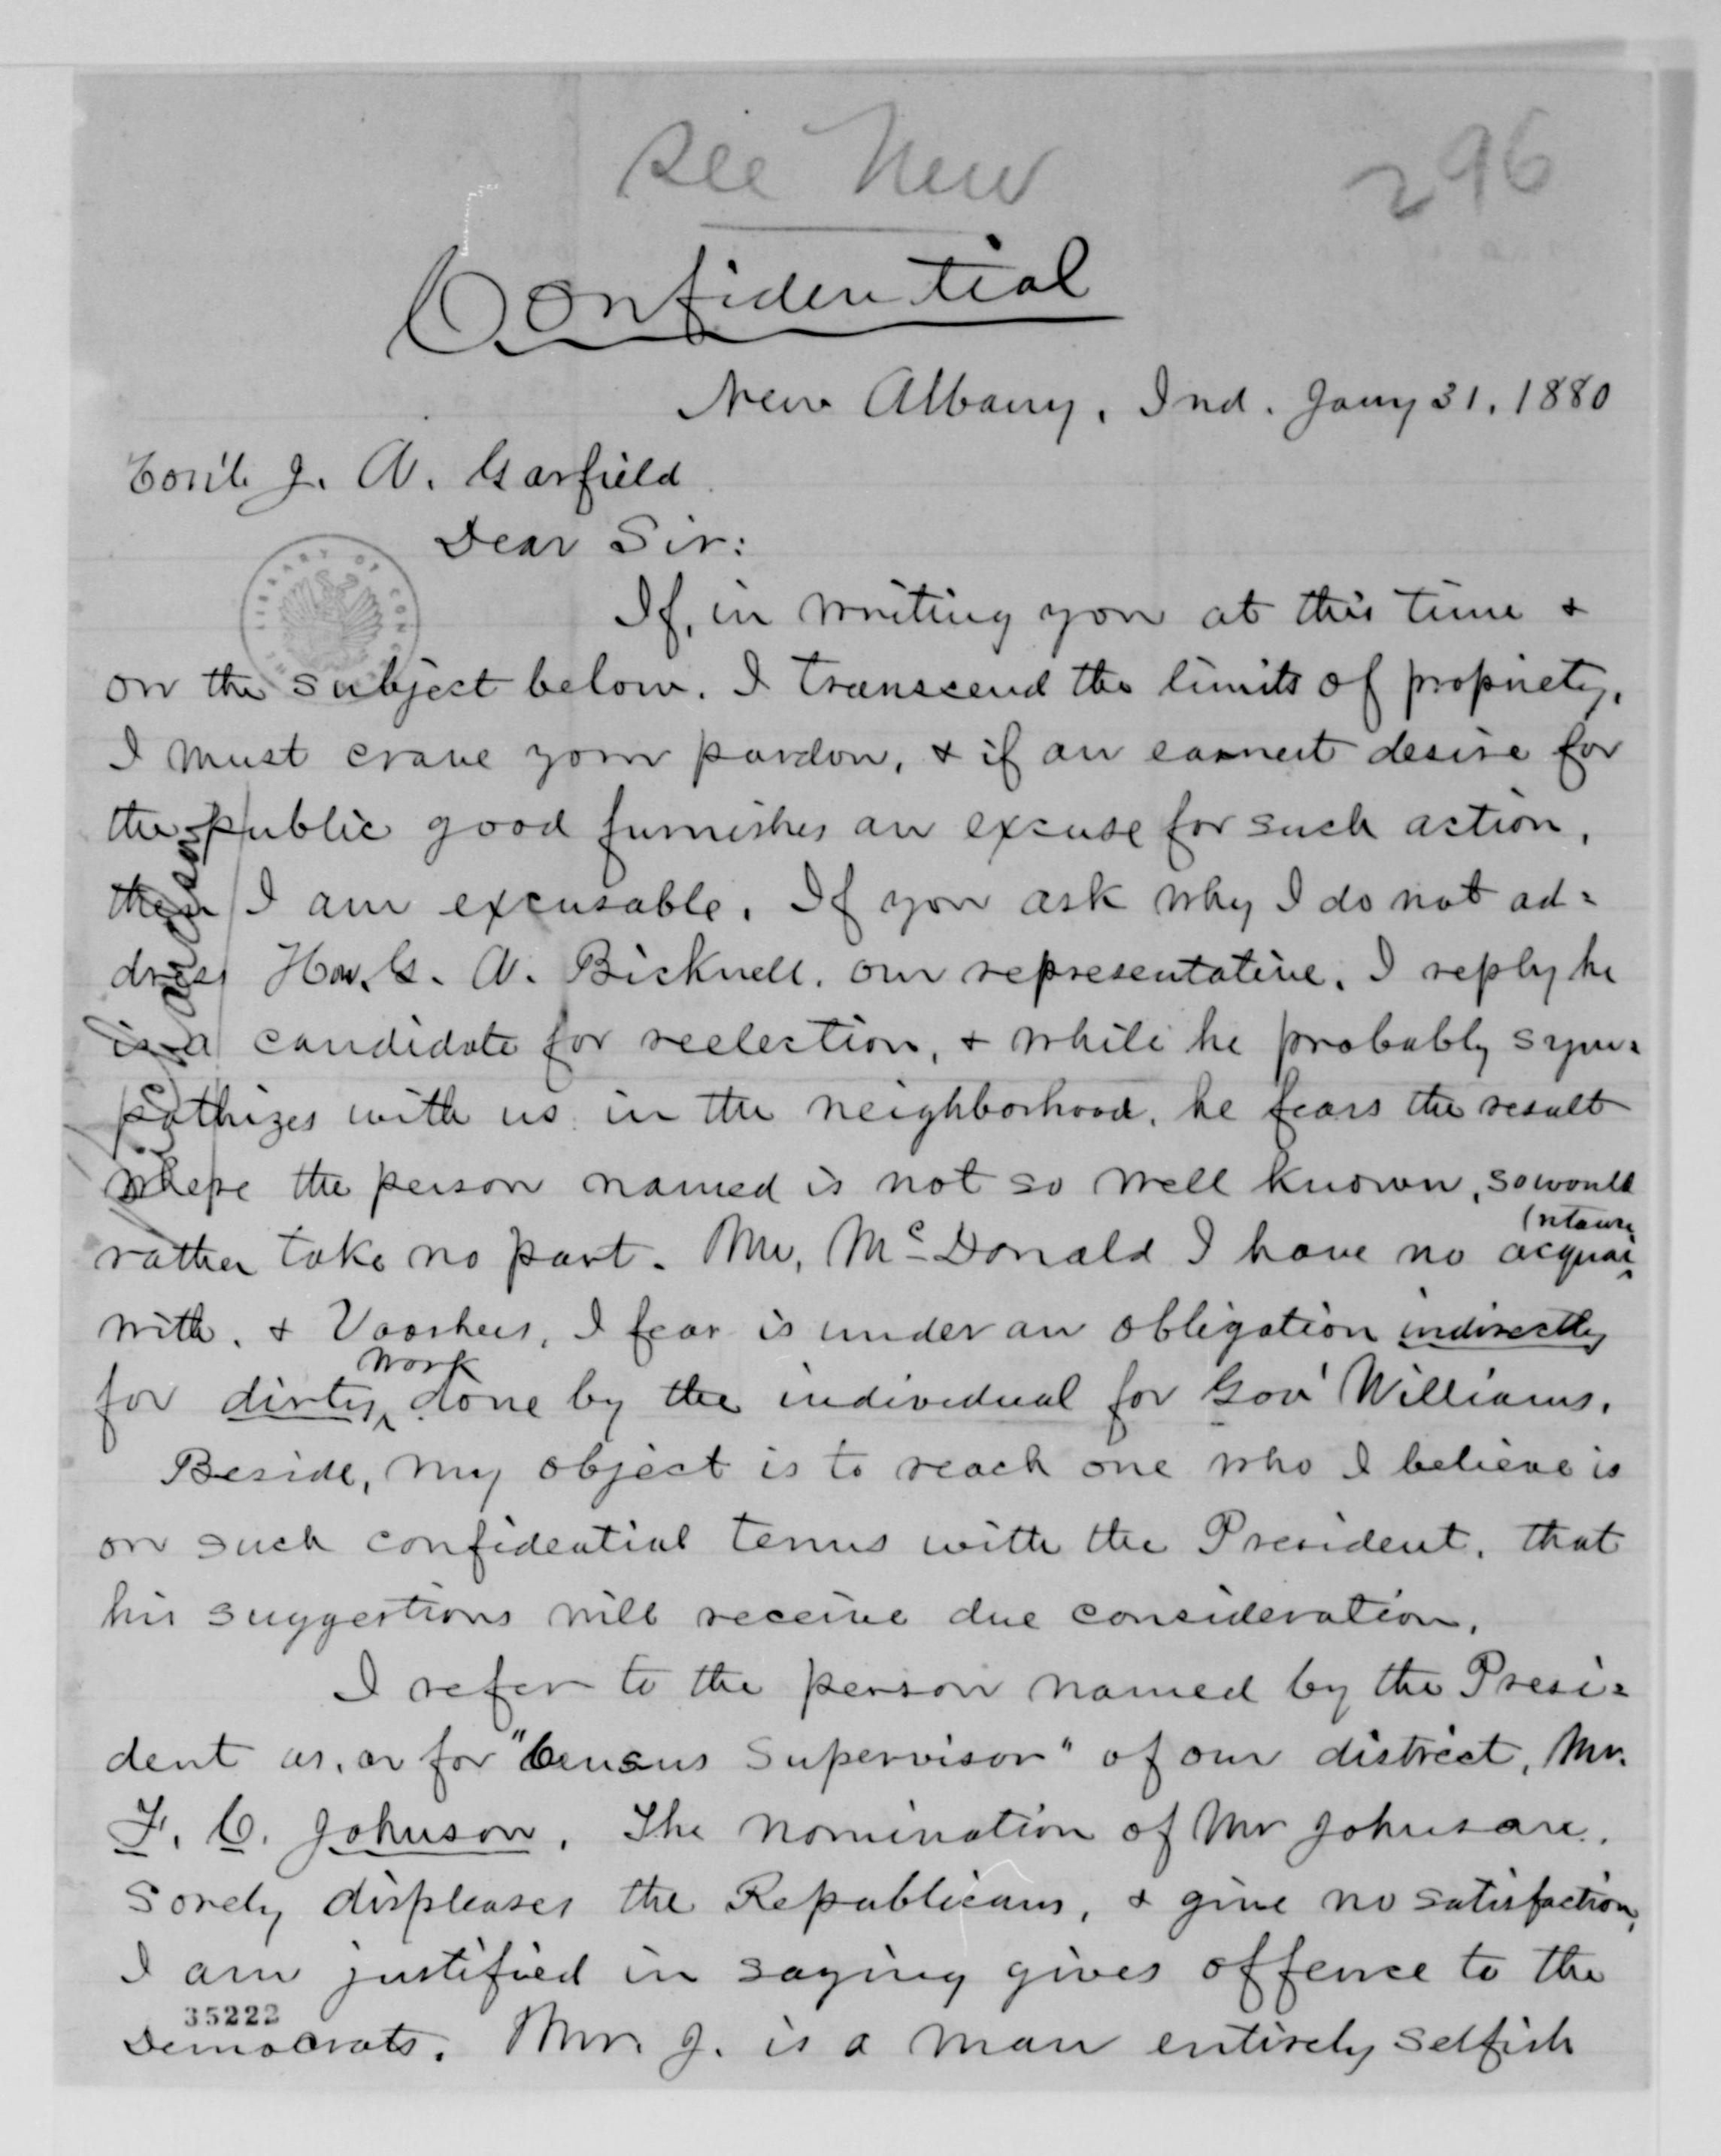 see New
296
Confidential
New Albany, Ind. Jany 31, 1880
J. A. Garfield
Dear Sir:
If, in writing you at this time &
on the subject below, I transcend the limits of propriety,
I must crave your pardon, & if an earnest desire for
the public good furnishes an excuse for such action,
then I am excusable. If you ask why I do not ad=
dress Hon. G. A. Bicknell, our representative, I reply he
is a candidate for reelection, & while he probably sym=
pathizes with us in the neighborhood, he fears the result
where the person named is not so well known, so would
rather take no part. Mr. McDonald I have no acquaintance
with, & Voorhees, I fear is under an obligation indirectly
for dirty work done by the individual for Gov' Williams.
Beside, my object is to reach one who I believe is
on such confidential terms with the President, that
his suggestions will receive due consideration.
I refer to the person named by the Presi=
dent as, or for "Census Supervisor" of our district, Mr.
F. C. Johnson. The nomination of Mr Johnson
sorely displeases the Republicans, & give no satisfaction,
I am justified in saying gives offence to the
35222
Democrats. Mr. J. is a man entirely selfish